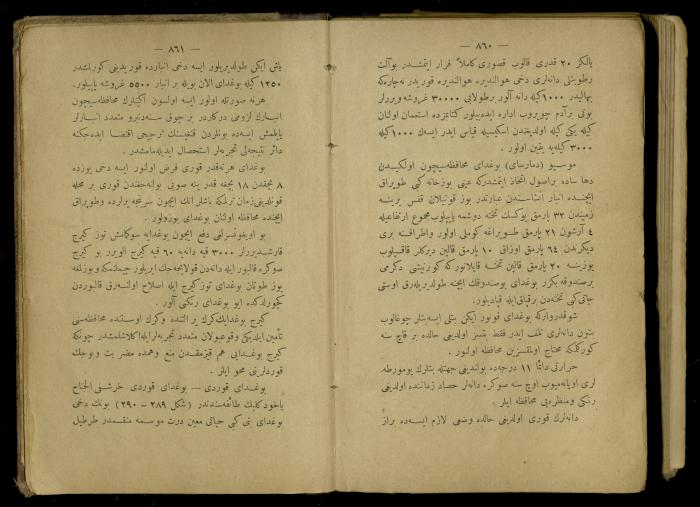 — ٨٦٠ —
یالكز ٢٠ قدری قالوب قصوری كاملاً فرار ایتمشدر بوآلت
رطوبتلی دانه‌لری دخی هوالندیره هوالندیره قوریدر نه‌چاره‌كه
بهالیدر ١٠٠٠ كیله دانه آلور برطولابی ٣٠٠٠٠ غروشه ویررلر
بونی برآدم چویروب اداره ایده‌بیلور كتابمزده استعمان اولنان
كیله یكی كیله اولدیغندن اسكیسیله قیاس ایدر ایسه‌ك ١٠٠٠ كیله
٣٠٠٠ كیله‌یه یقین اولور .
موسیو (دمارسای) بوغدای محافظه‌سیچون اولكیدن
دها ساده براصول اتخاذ ایتمشدركه عینی بوزخانه كبی طوپراق
ایچنده انبار انشاسندن عبارتدر بوز قونیلان قفس یرینه
زمیندن ٣٢ پارمق یوكسك تخته دوشمه یاپیلوب مجموع ارتفاعیله
٤ آرشون ٢١ پارمق طوپراغه كوملی اولور واطرافنه بری
دیكرندن ٦٤ پارمق اوزاق ١٠ پارمق قالین دیركلر قاقیلوب
یوزینه ٢٠ پارمق قالین تخته قاپلانوركه كورنیشی دكرمی
برصندوقه بكزر بوغدای بوصندوقك ایچنه طولدیریله‌رق اوستی
چاتی‌كبی تخته‌دن برقپاق‌ایله قپادیلور.
شوقدروارکه بوغدای قونور ایكن بتلی ایسه‌بتلر چوغالوب
بتون دانه‌لری تلف ایدر فقط بتسز اولدیغی حالده بر قاچ سنه
كورككه محتاج اولمقسزین محافظه اولنور .
حرارتی دائما ١١ درجه‌ده بولندیغی جهتله بتلرك یومورطه
لری اویانه‌میوب اوچ سنه صوكره دانه‌لر حصاد زماننده اولدیغی
رنكی ومنظره‌یی محافظه ایلر .
دانه‌لرك قوری اولدیغی حالده وضعی لازم ایسه‌ده براز
— ٨٦١ —
یاش ایكن طولدیریلور ایسه دخی انبارده قوریدیغی كورلمشدر
١٢٥٠ كیله بوغدای الان بویله بر انبار ٥٥٠٠ غروشه یاپیلور.
هرنه صورتله اولور ایسه اولسون اكینلرك محافظه‌سیچون
انبارك لزومی دركاردر بر چوق سنه‌دنبرو متعدد انبارلر
یاپلمش ایسه‌ده بونلردن قنغیسنك ترجیحی اقتضا ایده‌جكنه
دائر نتیجه‌لی تجربه‌لر استحصال ایدیله‌مامشدر .
بوغدای هرنه‌قدر قوری فرض اولنور ایسه دخی یوزده
٨ بچقدن ١٨ بچغه قدر ینه صویی بوله‌جغندن قوری بر محله
قونلدیغی زمان ترلمكه باشلر انك ایچون سریجه یرلرده وطوپراق
ایچنده محافظه اولنان بوغدای بوزولور .
بو اویغونسزلغی دفع ایچون بوغدایه سوكمامش توز كیرج
قارشدیررلر ٣٠٠٠ قیه دانه‌یه ٦٠ قیه كیرج الویرر بو كیرج
صوكره قالبور ایله دانه‌دن قولایجه‌جق ایریلور چیملنمكه وبوزلمغه
یوز طوتان بوغدای توز كیرج ایله اصلاح اولنه‌رق قالبوردن
كچورلدكده ایو بوغدای رنكنی آلور .
كیرج بوغدایك كرك یر التنده وكرك اوستنده محافظه‌سنی
تأمین ایلدیكی وقوعبولان متعدد تجربه‌لرایله اكلاشلمشدر چونكه
كیرج بوغدایی هم قیزمقدن منع وهمده مضر بت وبوجك
قوردلرینی محو ایلر .
بوغدای قوردی — بوغدای قوردی خرشفی الجناح
یاخود كلبك طائفه‌سندندر (شكل ٢٨٩ – ٢٩٠) بونك دخی
بوغدای بتی كبی حیاتی معین درت موسمه منقسمدر طرطیل